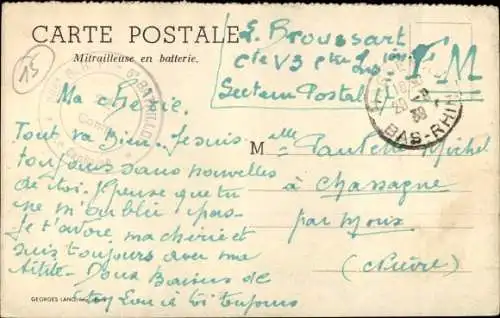 CARTE POSTALE
Mitrailleuse en batterie.
15
L. Broussart
Cie V3
Secteur Postal
F M
BAS-RHIN
Ma cherie.
Tout va Bien. Je suis
toujours sans nouvelles
de toi. J pense que tu
ne m'oublie pas.
Je t'adore ma cherie et
suis toujours avec ma
Doux Baisers de
toujours
M elle Paulette Michel
à Chassagne
par Moux
(Nièvre)
GEORGES LANG